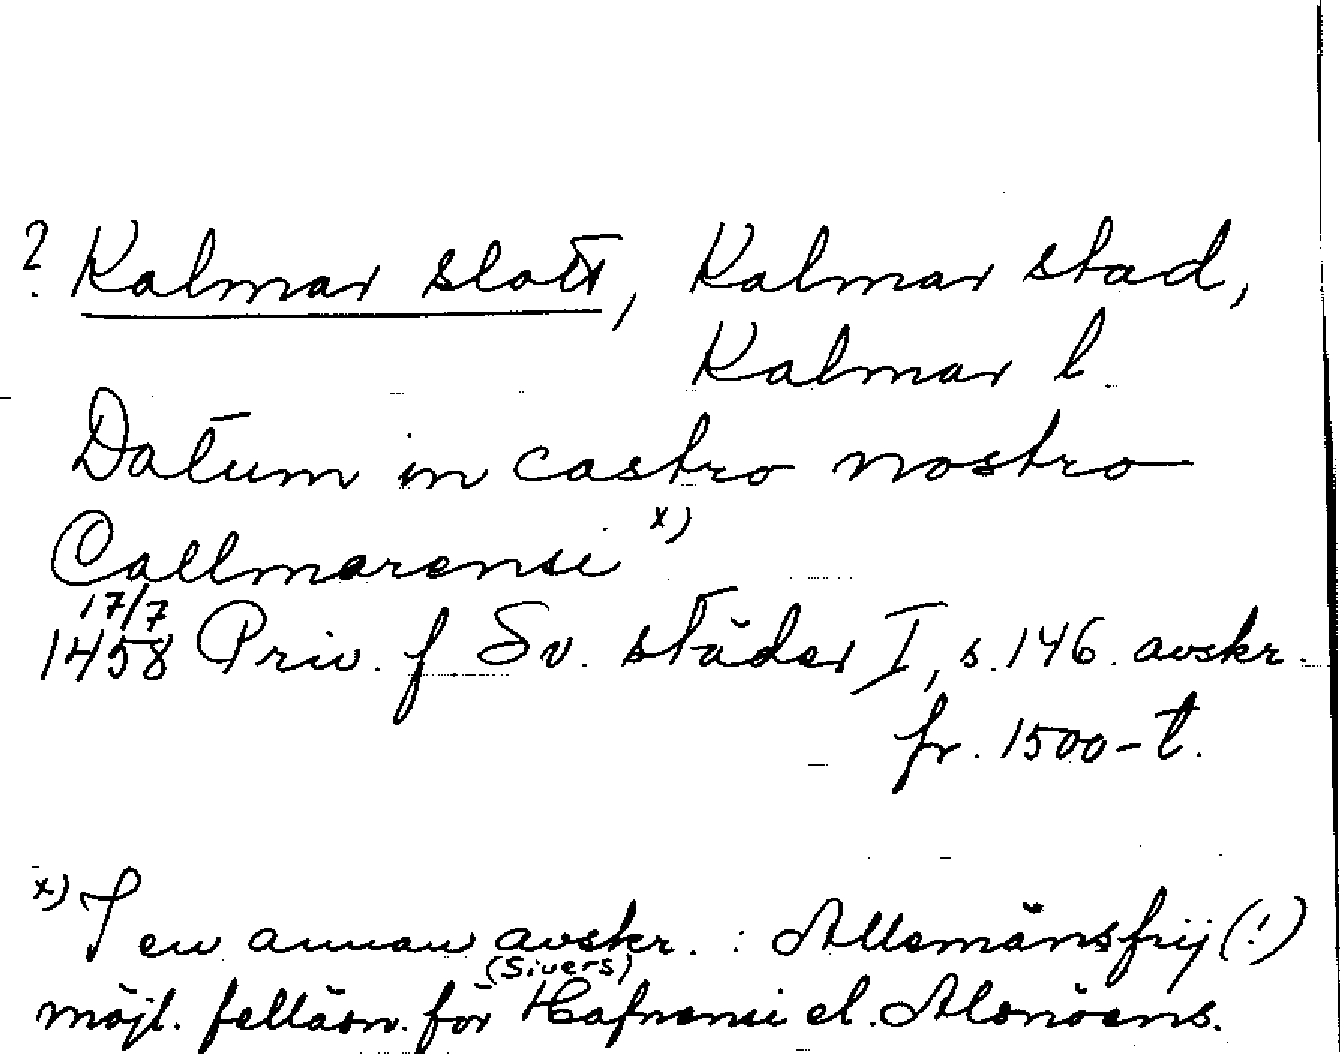 ? Kalmar slott, Kalmar stad,
Kalmar l.
Datum in castro nostro
Callmarensi x)
17/7
1458 Priv. f Sv. städer I, s. 146. avskr.
fr. 1500-t.
x) I en annan avskr. : Allemänsfrij (!)
(Sivers)
möjl. felläsn. för Hafnensi el. Alsnöens.